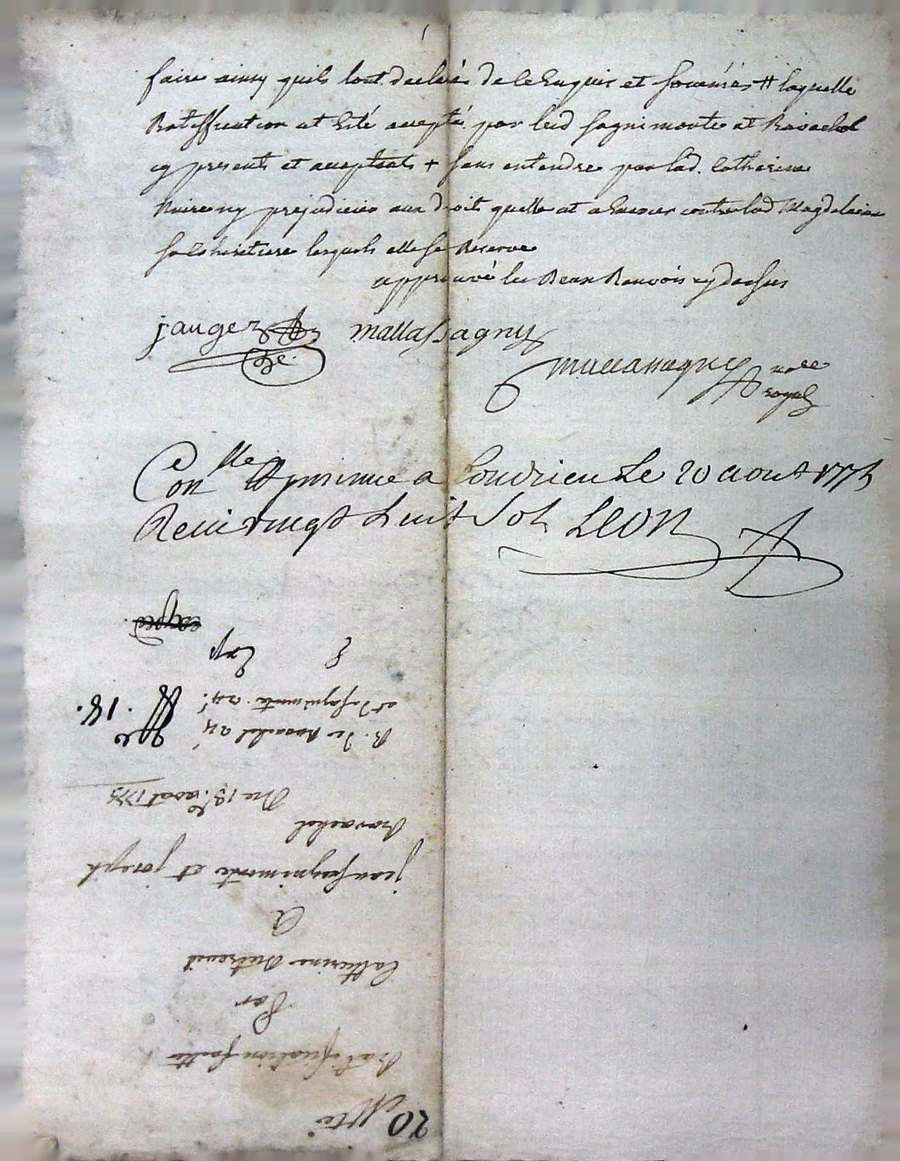 faire ainsy quils lont declaré de ce Enquis et sommés # laquelle
Ratiffication at Eté accepté par lesd fagnimonte et Ravachol
cy presents et acceptants + sans entendre par lad. Catherine
prejudicier aux droits quelle at a Exercer contre lad Magdelaine
sa cohéritiere lesquels elle se Reserve
approuvé les deux Renvois cy dessus
jauger mallassagny
mallassagny no.re
royal
Con.lle a Condrieu Le 20 aout 1775
Reçu vingt huit sols LEON
20
Ratiffication faitte
Par
Catherine
A
jean fagnimonte et joseph
Ravachol
Du 18.e aout 1775
R. de Ravachol
et de fagnimonte
18.
Exp